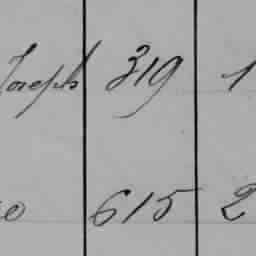 Joseph 319 1
o 615 2